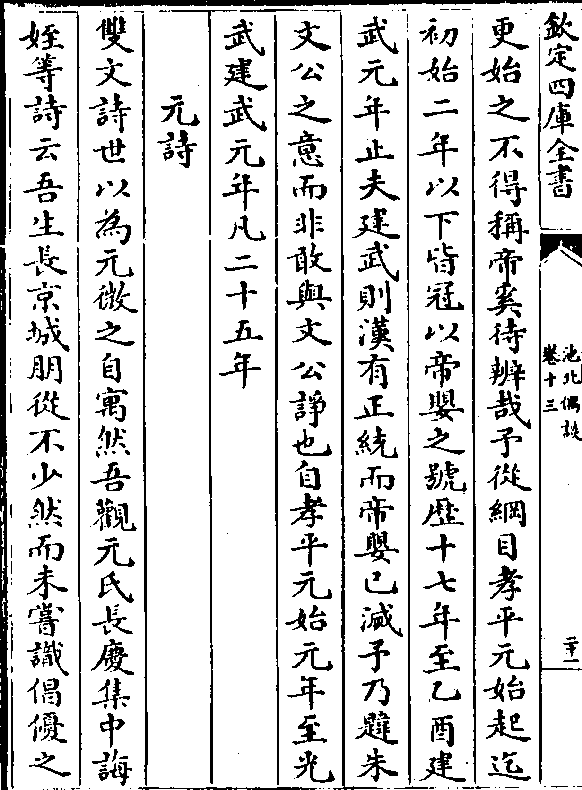 欽定四庫全書
池北偶談
卷十三
二十一
更始之不得稱帝奚待辨哉予從綱目孝平元始起迄
初始二年以下皆冠以帝嬰之號歴十七年至乙酉建
武元年止夫建武則漢有正統而帝嬰已滅予乃踵朱
文公之意而非敢與文公諍也自孝平元始元年至光
武建武元年凡二十五年
元詩
雙文詩世以為元微之自寓然吾觀元氏長慶集中誨
姪等詩云吾生長京城朋從不少然而未嘗識倡優之